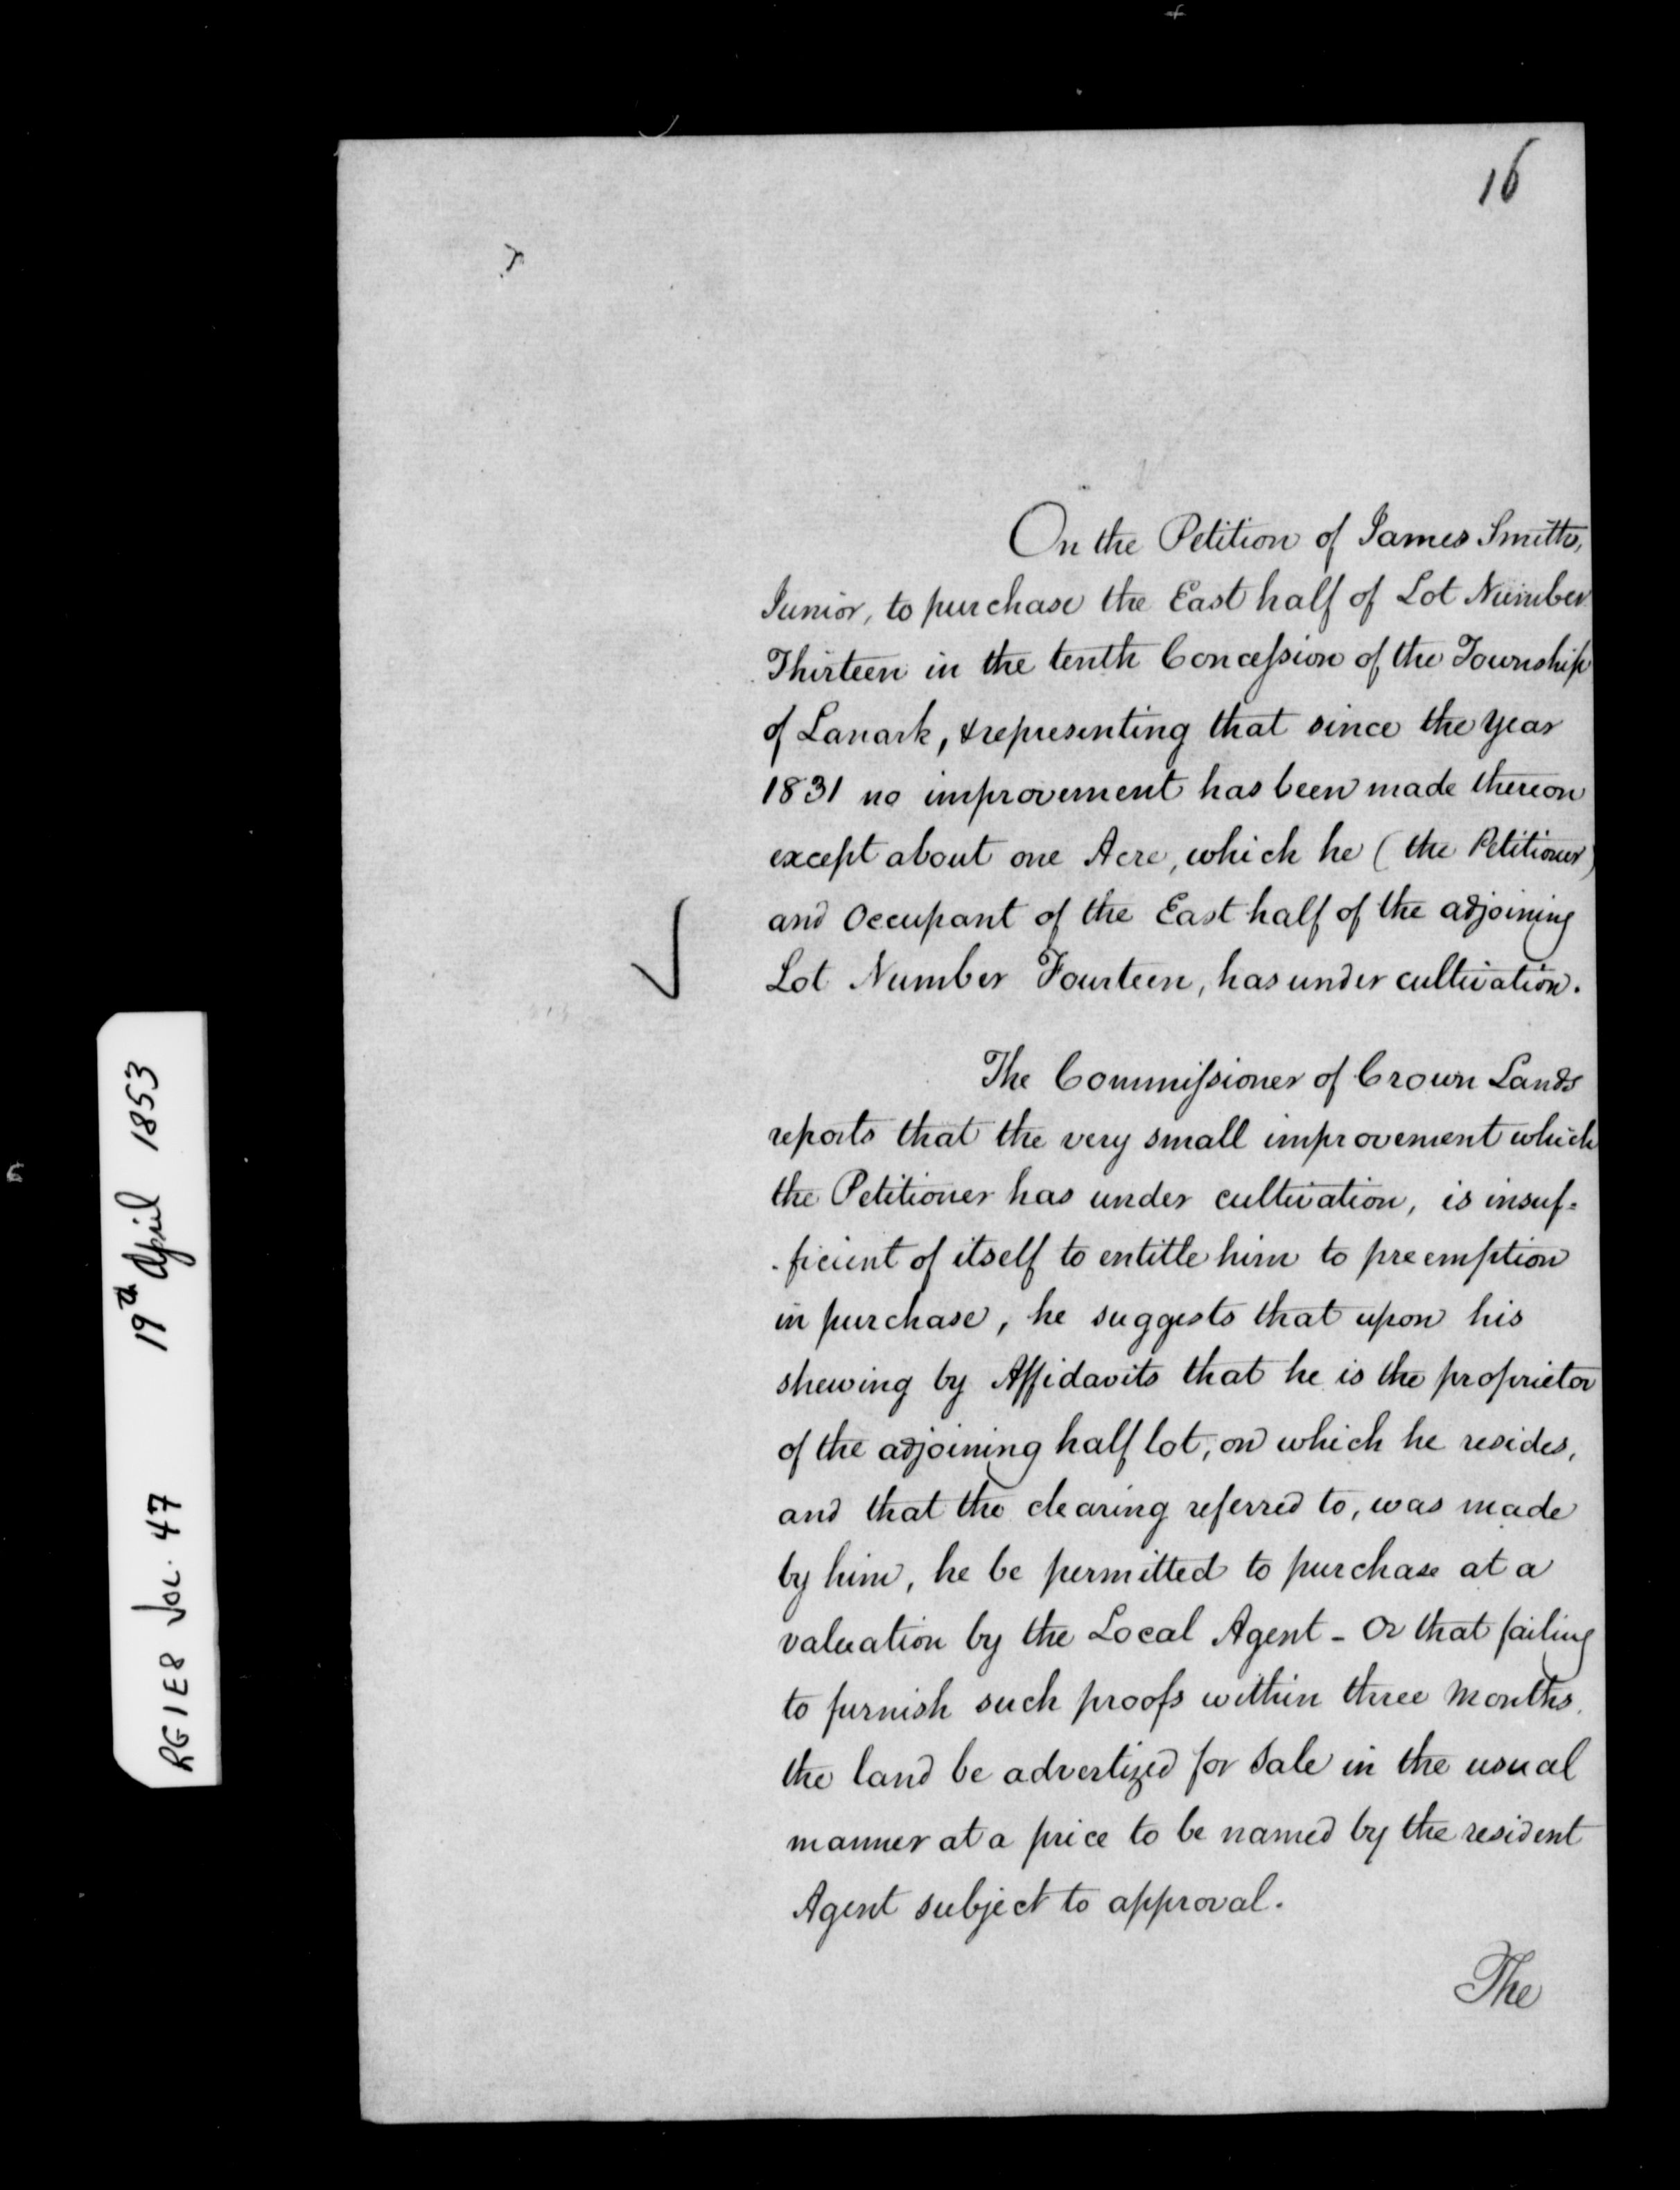 16
On the Petition of James Smith,
Junior, to purchase the East half of Lot Number
Thirteen in the tenth Concession of the Township
of Lanark, & representing that since the year
1831 no improvement has been made thereon
except about one Acre, which he (the Petitioner)
and Occupant of the East half of the adjoining
Lot Number Fourteen, has under cultivation.
The Commissioner of Crown Lands
reports that the very small improvement which
the Petitioner has under cultivation, is insuf-
ficient of itself to entitle him to preemption
in purchase, he suggests that upon his
shewing by Affidavits that he is the proprietor
of the adjoining half lot, on which he resides,
and that the clearing referred to, was made
by him, he be permitted to purchase at a
valuation by the Local Agent - Or that failing
to furnish such proofs within three Months.
the land be advertized for Sale in the usual
manner at a price to be named by the resident
Agent subject to approval.
The
RG1E8 VOL. 47 19th April 1853